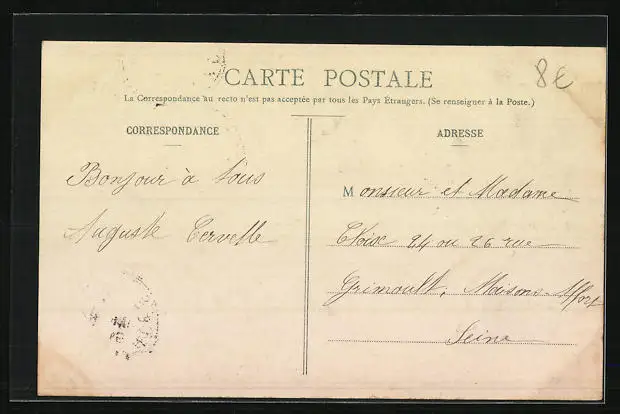 8€
CARTE POSTALE
La Correspondance au recto n'est pas acceptée par tous les Pays Étrangers. (Se renseigner à la Poste.)
CORRESPONDANCE
ADRESSE
Bonjour à tous
Auguste Cervelle
Monsieur et Madame
24 ou 26 rue
Grimoult, Maisons-Alfort
Seine